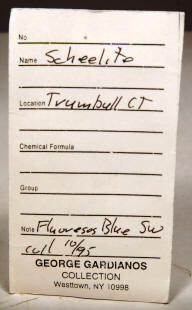 No
Name Scheelite
Location Trumbull CT
Chemical Formula
Group
Note Fluoreses Blue SW
coll 10/95
GEORGE GARDIANOS
COLLECTION
Westtown, NY 10998